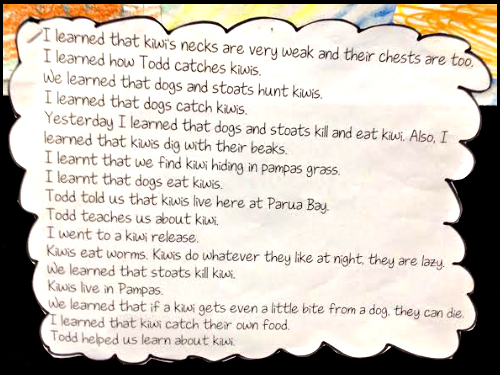 I learned that kiwi's necks are very weak and their chests are too.
I learned how Todd catches kiwis.
We learned that dogs and stoats hunt kiwis.
I learned that dogs catch kiwis.
Yesterday I learned that dogs and stoats kill and eat kiwi. Also, I
learned that kiwis dig with their beaks.
I learnt that we find kiwi hiding in pampas grass.
I learnt that dogs eat kiwis.
Todd told us that kiwis live here at Parua Bay.
Todd teaches us about kiwi.
I went to a kiwi release.
Kiwis eat worms. Kiwis do whatever they like at night, they are lazy.
We learned that stoats kill kiwi.
Kiwis live in Pampas.
We learned that if a kiwi gets even a little bite from a dog, they can die.
I learned that kiwi catch their own food.
Todd helped us learn about kiwi.